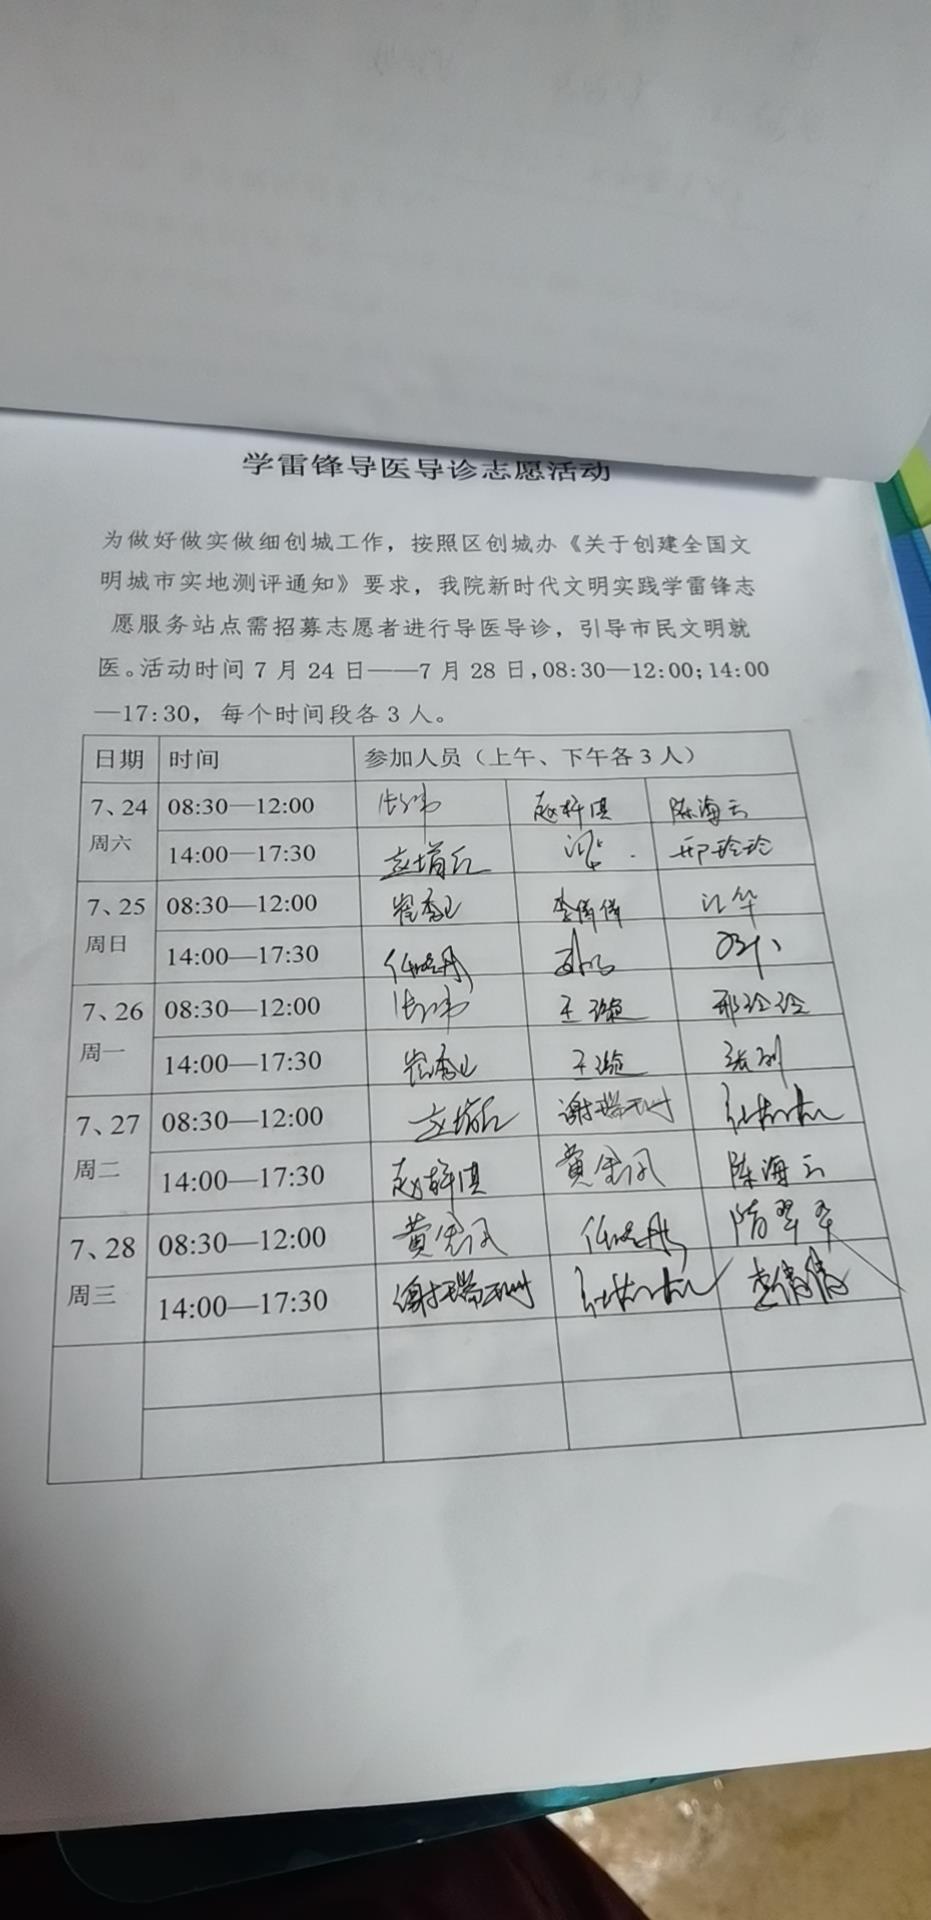 学雷锋导医导诊志愿活动
为做好做实做细创城工作，按照区创城办《关于创建全国文
明城市实地测评通知》要求，我院新时代文明实践学雷锋志
愿服务站点需招募志愿者进行导医导诊，引导市民文明就
医。活动时间7月24日——7月28日,08:30—12:00;14:00
—17:30，每个时间段各3人。
日期 时间 参加人员（上午、下午各3人）
7、24 08:30—12:00 陈海云
周六 14:00—17:30 邢玲玲
7、25 08:30—12:00 崔秀卫 李倩倩 江华
周日 14:00—17:30 任晓丹
7、26 08:30—12:00 邢玲玲
周一 14:00—17:30 崔秀卫
7、27 08:30—12:00
周二 14:00—17:30 黄金凤 陈海云
7、28 08:30—12:00 黄金凤 任晓丹 隋翠翠
周三 14:00—17:30 李倩倩